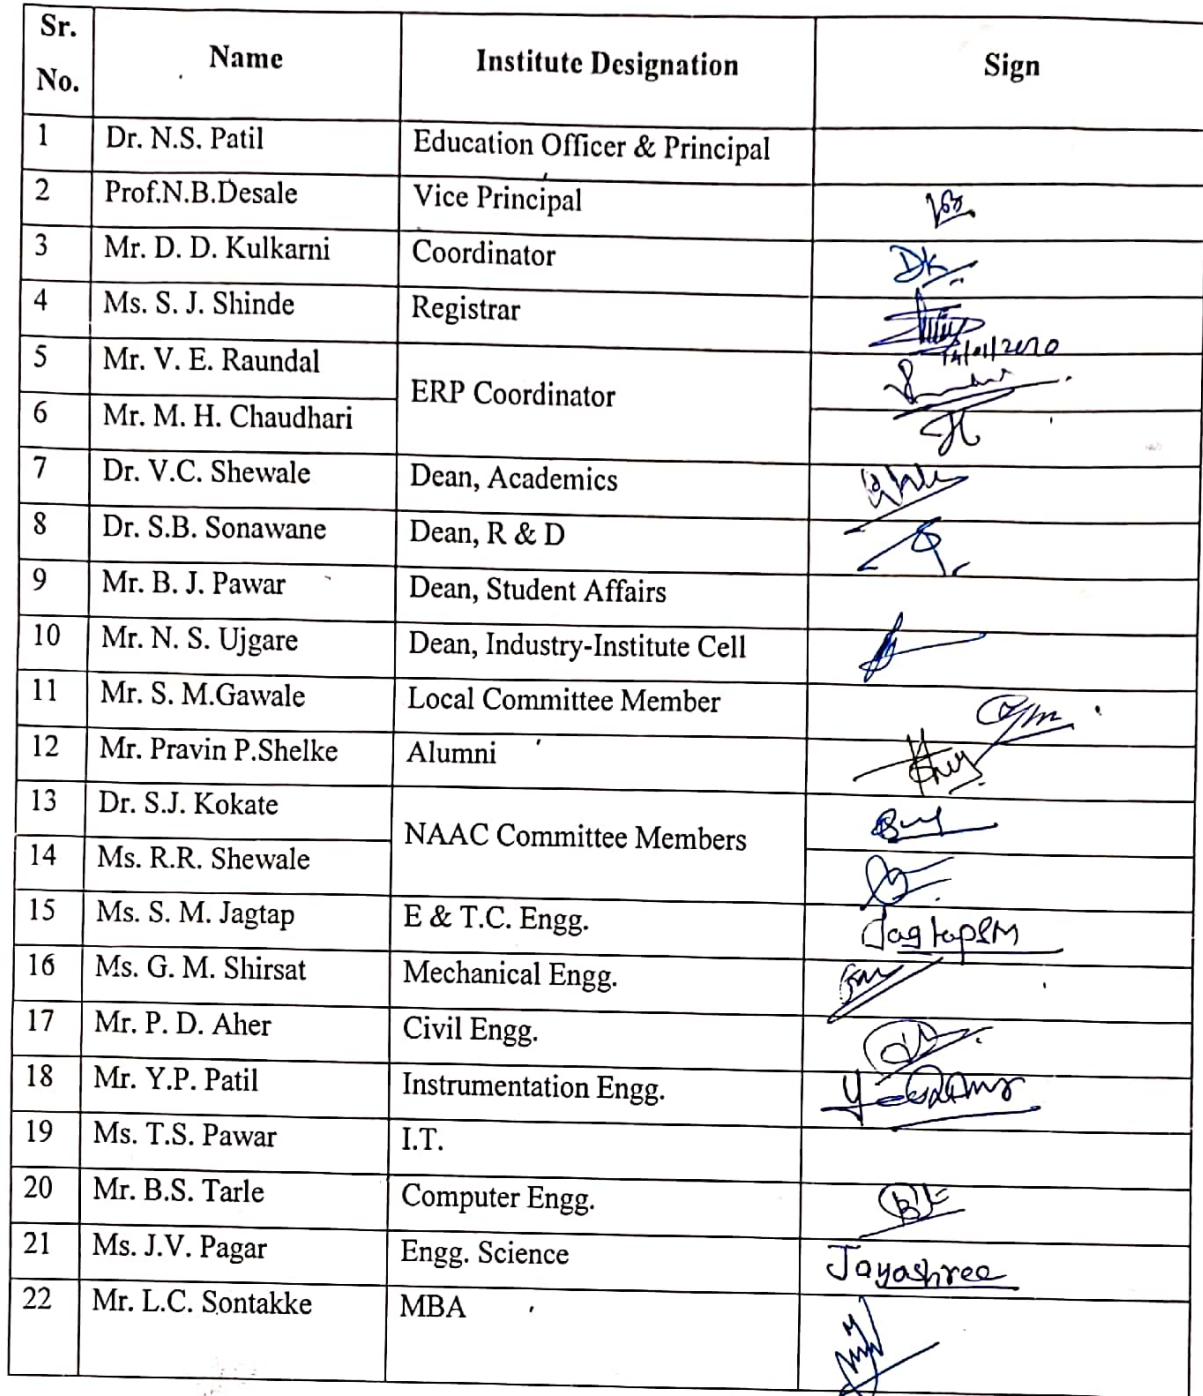 Sr. No. Name Institute Designation Sign
1 Dr. N.S. Patil Education Officer & Principal
2 Prof.N.B.Desale Vice Principal
3 Mr. D. D. Kulkarni Coordinator DK
4 Ms. S. J. Shinde Registrar
5 Mr. V. E. Raundal ERP Coordinator
6 Mr. M. H. Chaudhari
7 Dr. V.C. Shewale Dean, Academics
8 Dr. S.B. Sonawane Dean, R & D
9 Mr. B. J. Pawar Dean, Student Affairs
10 Mr. N. S. Ujgare Dean, Industry-Institute Cell
11 Mr. S. M.Gawale Local Committee Member
12 Mr. Pravin P.Shelke Alumni
13 Dr. S.J. Kokate NAAC Committee Members
14 Ms. R.R. Shewale
15 Ms. S. M. Jagtap E & T.C. Engg. JagtapSM
16 Ms. G. M. Shirsat Mechanical Engg.
17 Mr. P. D. Aher Civil Engg.
18 Mr. Y.P. Patil Instrumentation Engg.
19 Ms. T.S. Pawar I.T.
20 Mr. B.S. Tarle Computer Engg.
21 Ms. J.V. Pagar Engg. Science Jayashree
22 Mr. L.C. Sontakke MBA